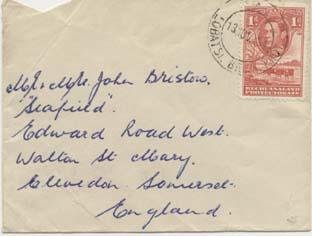 LOBATSI
1D 1D
BECHUANALAND
PROTECTORATE
Mr & Mrs. John Bristow.
"Seafield".
Edward Road West.
Walton St Mary.
Clevedon. Somerset.
England.